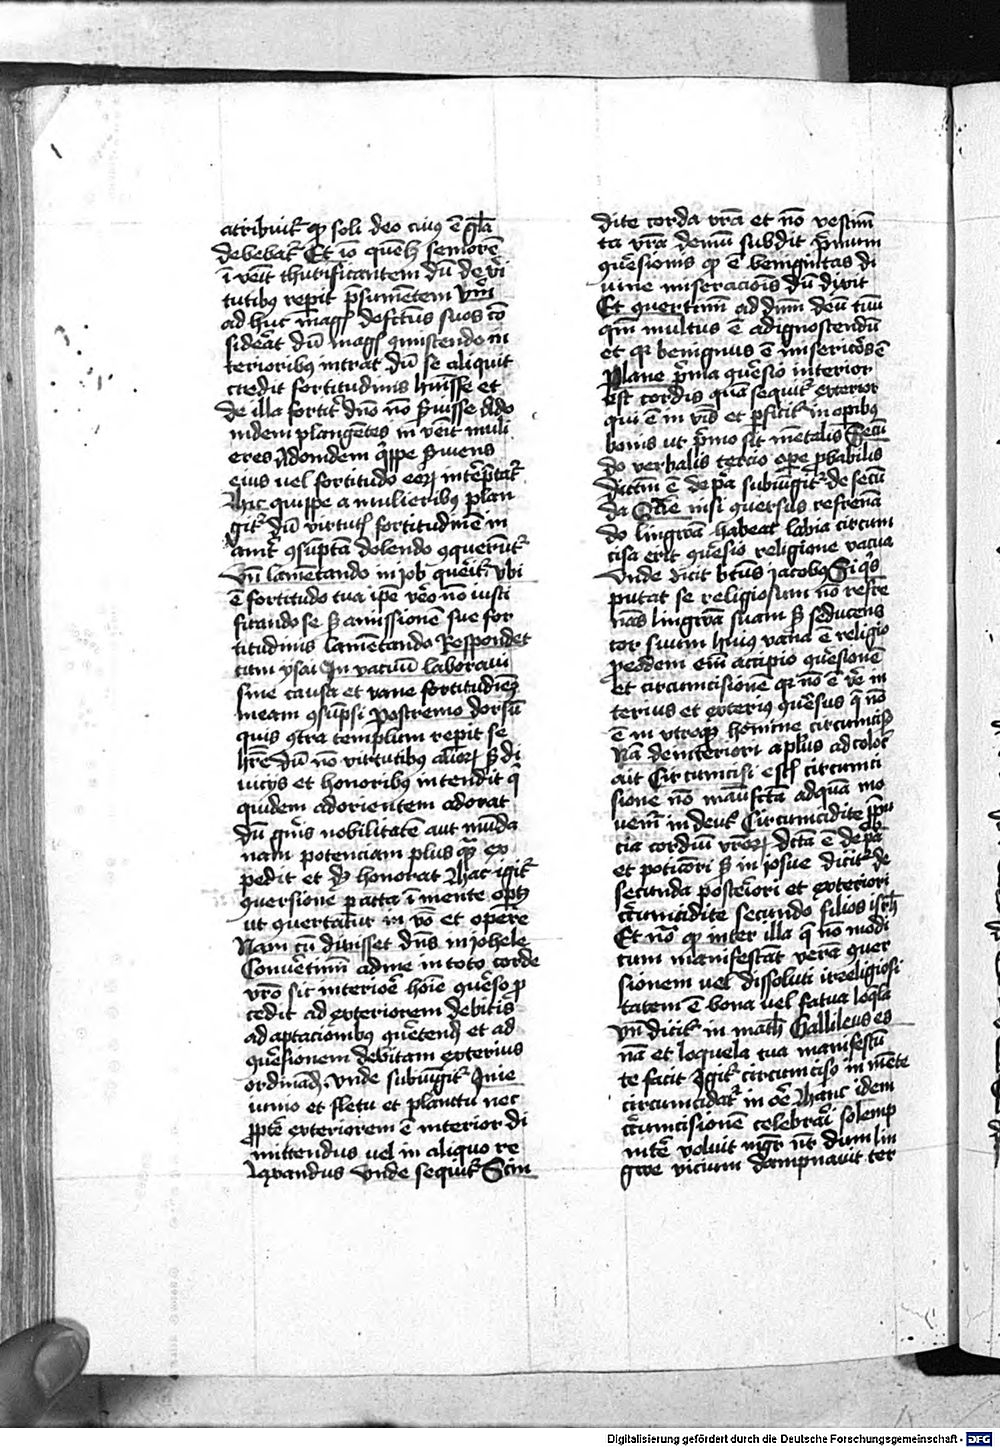 atribuit͛ qꝫ soli deo cuiꝰ ē gl̄a
debebat͛ Et iō quēlꝫ seniorē
īvēit thurificantem dū de v͛i
tutibꝰ repit p̄sumētem Vn̄
ad huc magꝭ defectus suos cō
siderāt dū magꝭ quiescendo in
terioribꝰ intrat dū se aliquit
credit fortitudinis hūisse et
de illa fortit͛ dn̄o nō s͛uisse Ado
nidem plangētes in vēit muli
eres Adonidem q̄ppe s͛uiens
eius uel fortitudo eoꝝ int͛p̄tat͛
Hic quippe a mulieribꝰ plan
git͛ dū virtutꝭ fortitudinē in
amr͛ ꝯsūptā dolendo ꝯquerūt͛
Vn̄ lamētando in job querit͛ vbi
ē fortitudo tua ip̄e v͛o nō iusti
ficando se s͛ amissionē sue for
titudinis lamētando Respondet
cum ysai In vacuū laboraui
sine causa et vane fortitudinē
meam ꝯsūpsi Postremo dorsū
quis ꝯtra templum repit se
hr̄e dū nō virtutibꝰ alioꝝ s͛ di
uicijs et honoribꝰ intendit q̄
quidem ad orientem adorat
dū gn̄is nobilitatē aut mūda
nam potenciam plus qꝫ ex
pedit et dꝫ honorat Hac igit͛
ꝯuersione p̄catta ī mente oportꝫ
ut ꝯuertatur in vō et opere
Nam cū dixisset dn̄s in johele
Conv͛timī ad me in toto corde
vr̄o sic interiorē hoīe ꝯu͛so p
cedit ad exteriorem debitis
adaptacionibus ꝯu͛tendꝫ et ad
ꝯu͛sionem debitam exterius
ordinādꝫ vnde subiūgit͛ In ie
iunio et fletu et planctu nec
ꝓpt͛ exteriorem ē interior di
mittendus uel in aliquo re
laxandus vnde sequit͛ Scin
dite corda vr̄a et nō vestim̄
ta vr̄a demū subdit p̄mium
ꝯu͛sionis qꝫ ē benignitas di
uine miseraciōis dū dixit
Et ꝯuertimī ad dn̄m deū tuū
qm̄ multus ē ad ignoscendū
et qꝛ benignus ē misericors ē
Plane p̄ma ꝯu͛sio interior
est cordis quā sequit͛ exterior
qui ē in v͛bis et p̄ficit͛ in opibꝰ
bonis ut p̄mo sit mētalis Secū
do verbalis tercio ope ꝓbabilis
Dictū ē de p̄a subiūgit͛ de secū
da Qꝛ nisi ꝯuersus refrenā
do lingwā habeat labia circum
cisa erit ꝯu͛sio religione vacua
Vnde dicit btūs Jacobꝰ Si qͥs
putat se religiosum nō refre
nās lingwā suam s͛ seducens
cor suum huiꝰ vana ē religio
Peodem em̄ accipio ꝯu͛sionē
et circumcisionē qꝛ nō ē v͛e in
terius et exteriꝰ ꝯu͛sus q̄ nō
ē in vtroqꝫ homine circumcisꝰ
Nā de interiori aplūs ad coloc̄
ait Circumcisi estꝭ circumci
sione nō manufctā ad quā mo
uem̄ in deut͛ Circumcidite p̄pu
cia cordiū vr̄oꝝ dctā ē de p̄a
et potiori s͛ in josue dicit͛ de
secunda posteriori et exteriori
Circumcidite secundo filios isrl̄
Et nō qꝫ inter illa q̄ nō modi
cum manifestāt verā ꝯuer
sionem uel dissoluti irreligiosi
tatem ē bona uel fatua loqla
vn̄ dicit͛ in math Gallileus es
nā et loquela tua manifestū
te facit Igit͛ circumciso in mēte
circumcidat͛ in o͛e Hanc idem
circumcisionē celebrari solemp
nit͛ voluit mḡr nr̄ dum lin
gwe vicium dampnauit ter